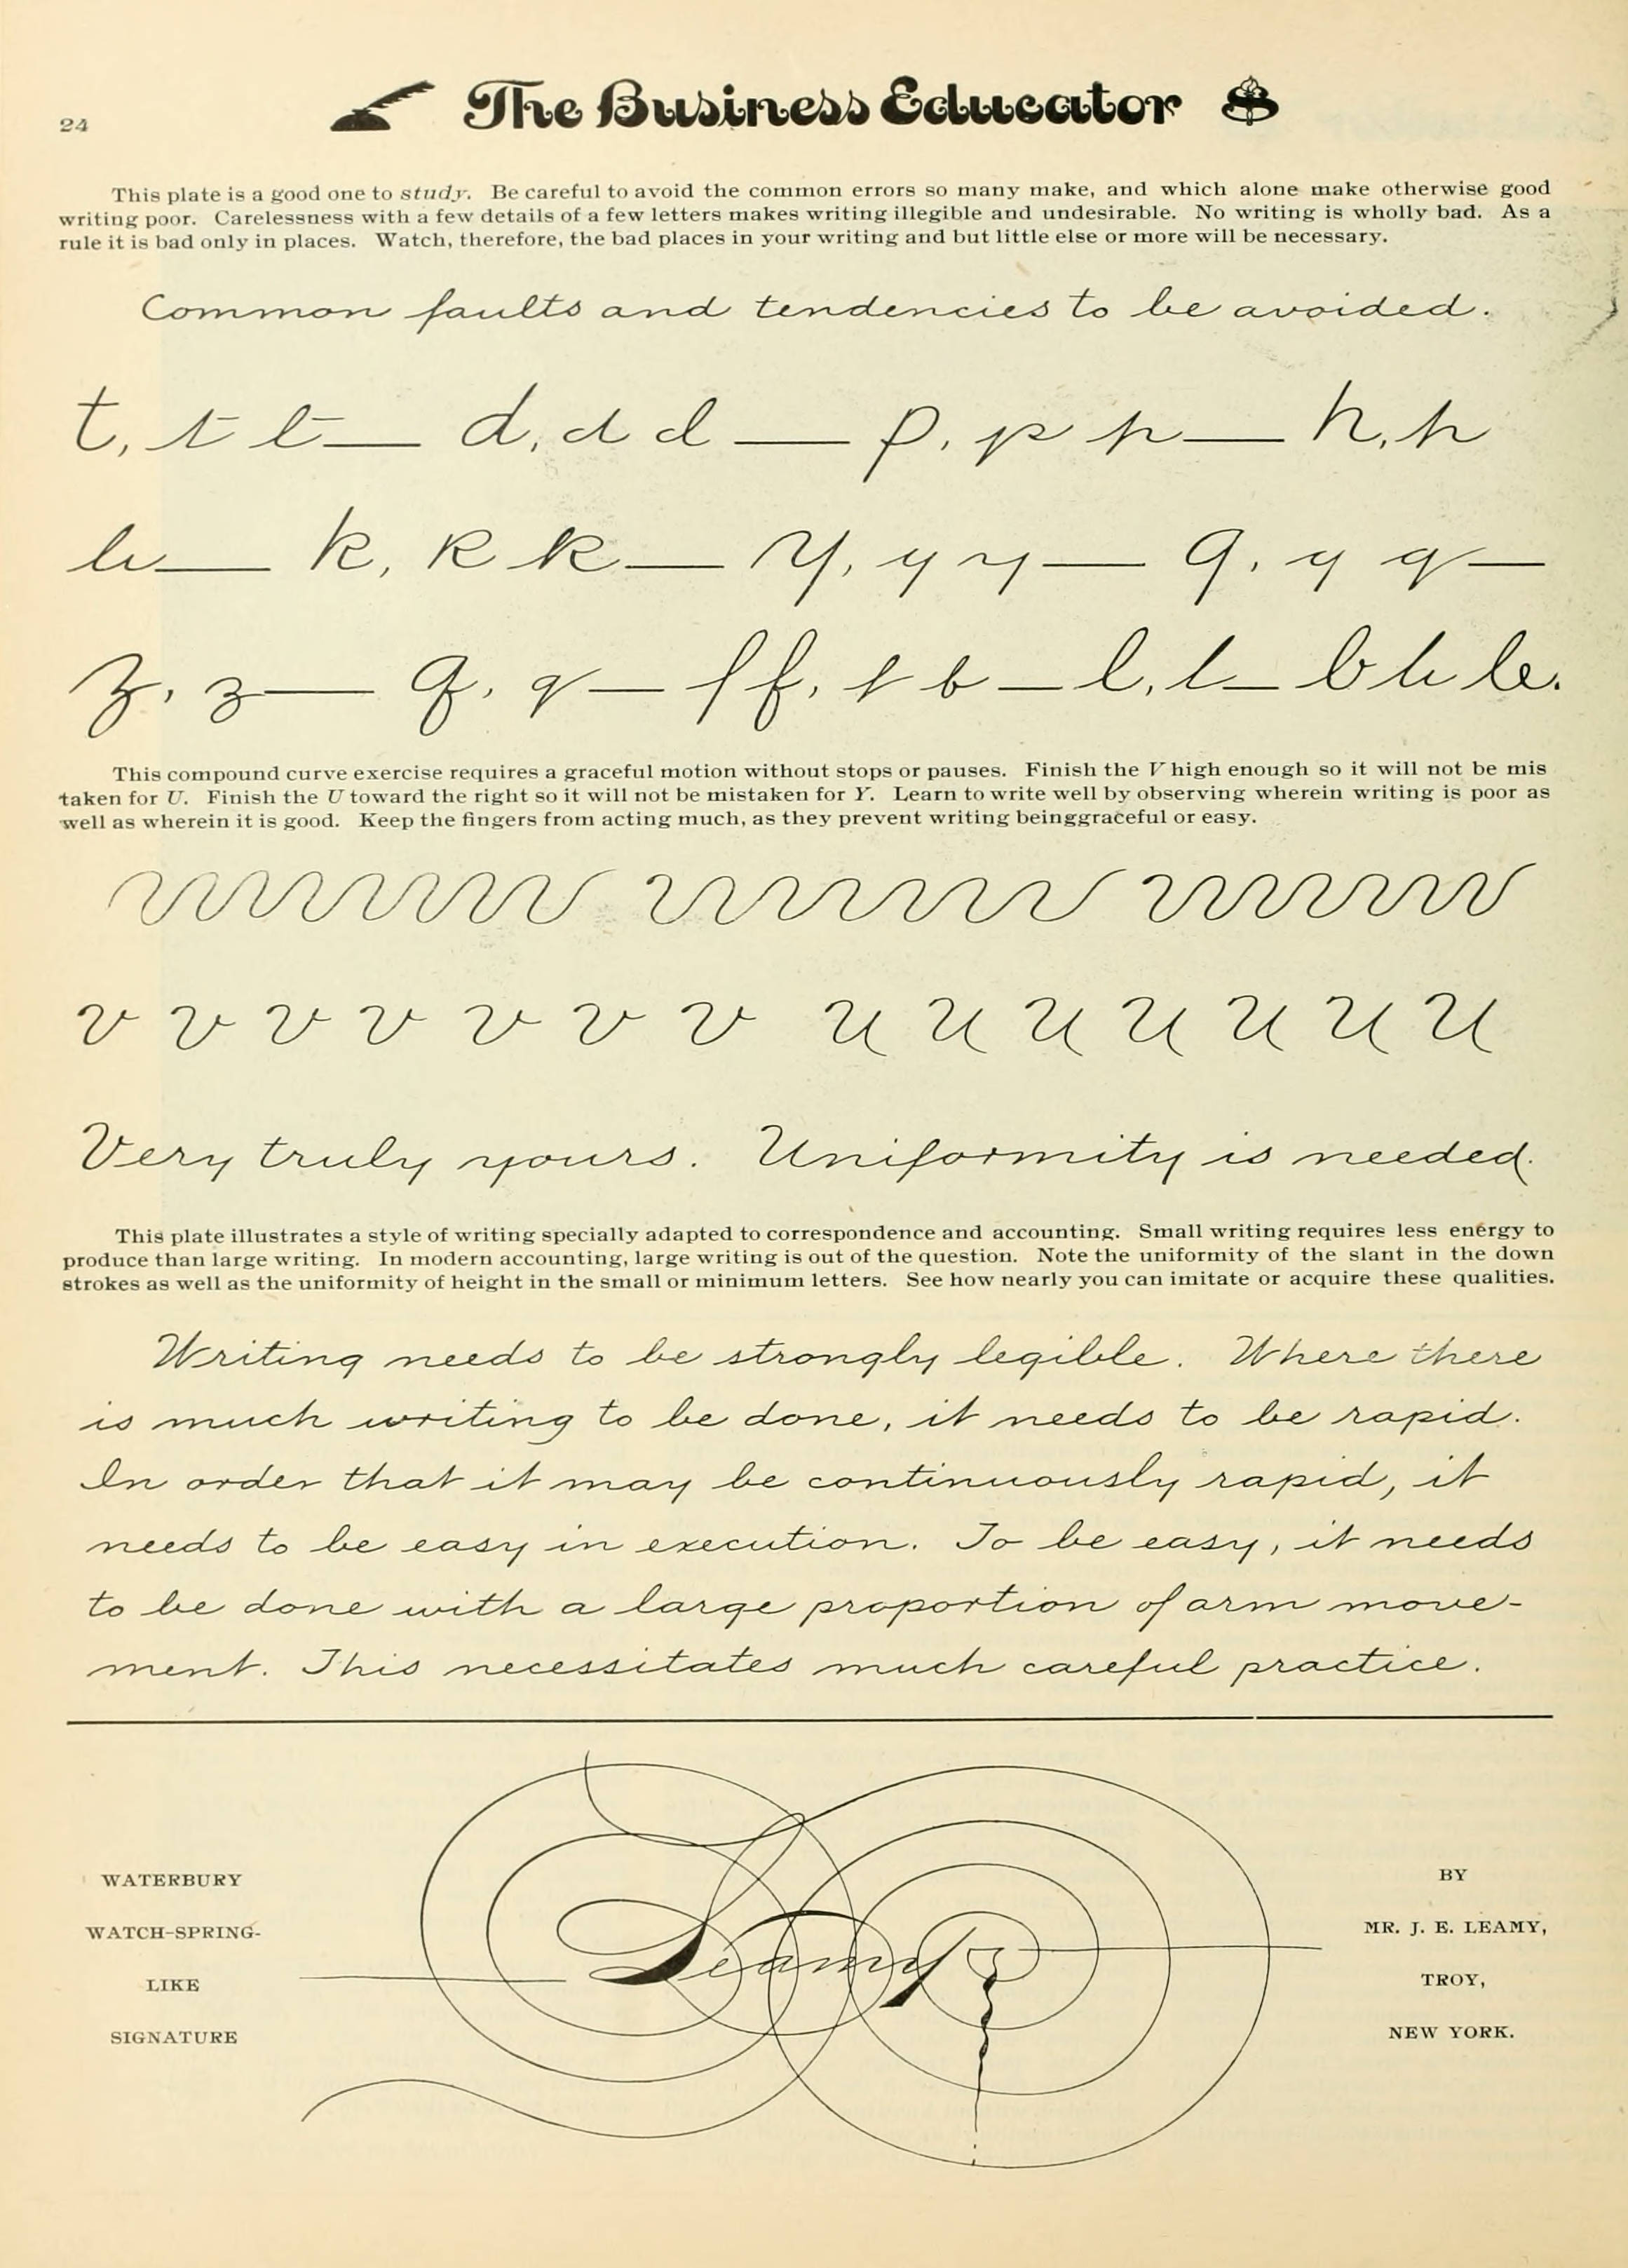 24
The Business Educator
This plate is a good one to study. Be careful to avoid the common errors so many make, and which alone make otherwise good
writing poor. Carelessness with a few details of a few letters makes writing illegible and undesirable. No writing is wholly bad. As a
rule it is bad only in places. Watch, therefore, the bad places in your writing and but little else or more will be necessary.
Common faults and tendencies to be avoided.
t, t t — d, d d — p, p p — h, h
h — k, k k — y, y y — g, y g —
z, z — q, q — f f, f b — l, l — b h le.
This compound curve exercise requires a graceful motion without stops or pauses. Finish the V high enough so it will not be mis
taken for U. Finish the U toward the right so it will not be mistaken for Y. Learn to write well by observing wherein writing is poor as
well as wherein it is good. Keep the fingers from acting much, as they prevent writing beinggraceful or easy.
V V V V V V V U U U U U U U
Very truly yours. Uniformity is needed.
This plate illustrates a style of writing specially adapted to correspondence and accounting. Small writing requires less energy to
produce than large writing. In modern accounting, large writing is out of the question. Note the uniformity of the slant in the down
strokes as well as the uniformity of height in the small or minimum letters. See how nearly you can imitate or acquire these qualities.
Writing needs to be strongly legible. Where there
is much writing to be done, it needs to be rapid.
In order that it may be continuously rapid, it
needs to be easy in execution. To be easy, it needs
to be done with a large proportion of arm move-
ment. This necessitates much careful practice.
WATERBURY
WATCH-SPRING-
LIKE
SIGNATURE
Leamy
BY
MR. J. E. LEAMY,
TROY,
NEW YORK.